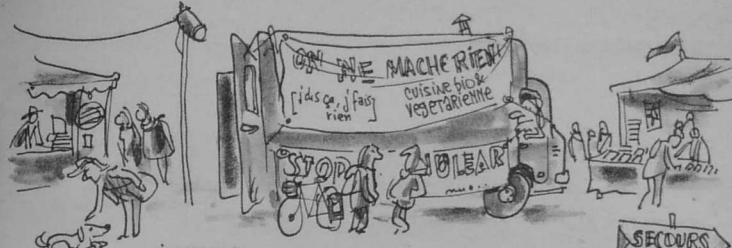 ON NE MACHE RIEN!
[j'dis ça, j'fais rien]
cuisine bio &
vegetarienne
"STOP NUCLEAR"
SECOURS